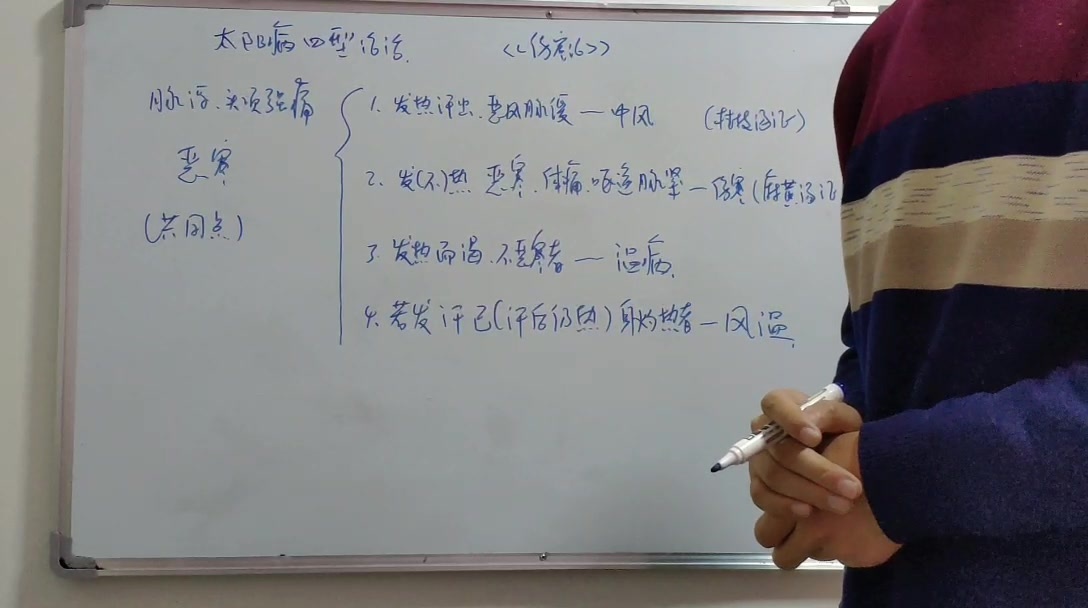 太阳病四型论治 《伤寒论》
脉浮、头项强痛
恶寒
(共同点)
1. 发热汗出、恶风脉缓—中风 (桂枝汤证)
2. 发(不)热 恶寒、体痛、呕逆脉紧—伤寒(麻黄汤证
3. 发热而渴、不恶寒者—温病、
4. 若发汗已(汗后仍热)身灼热者—风温、